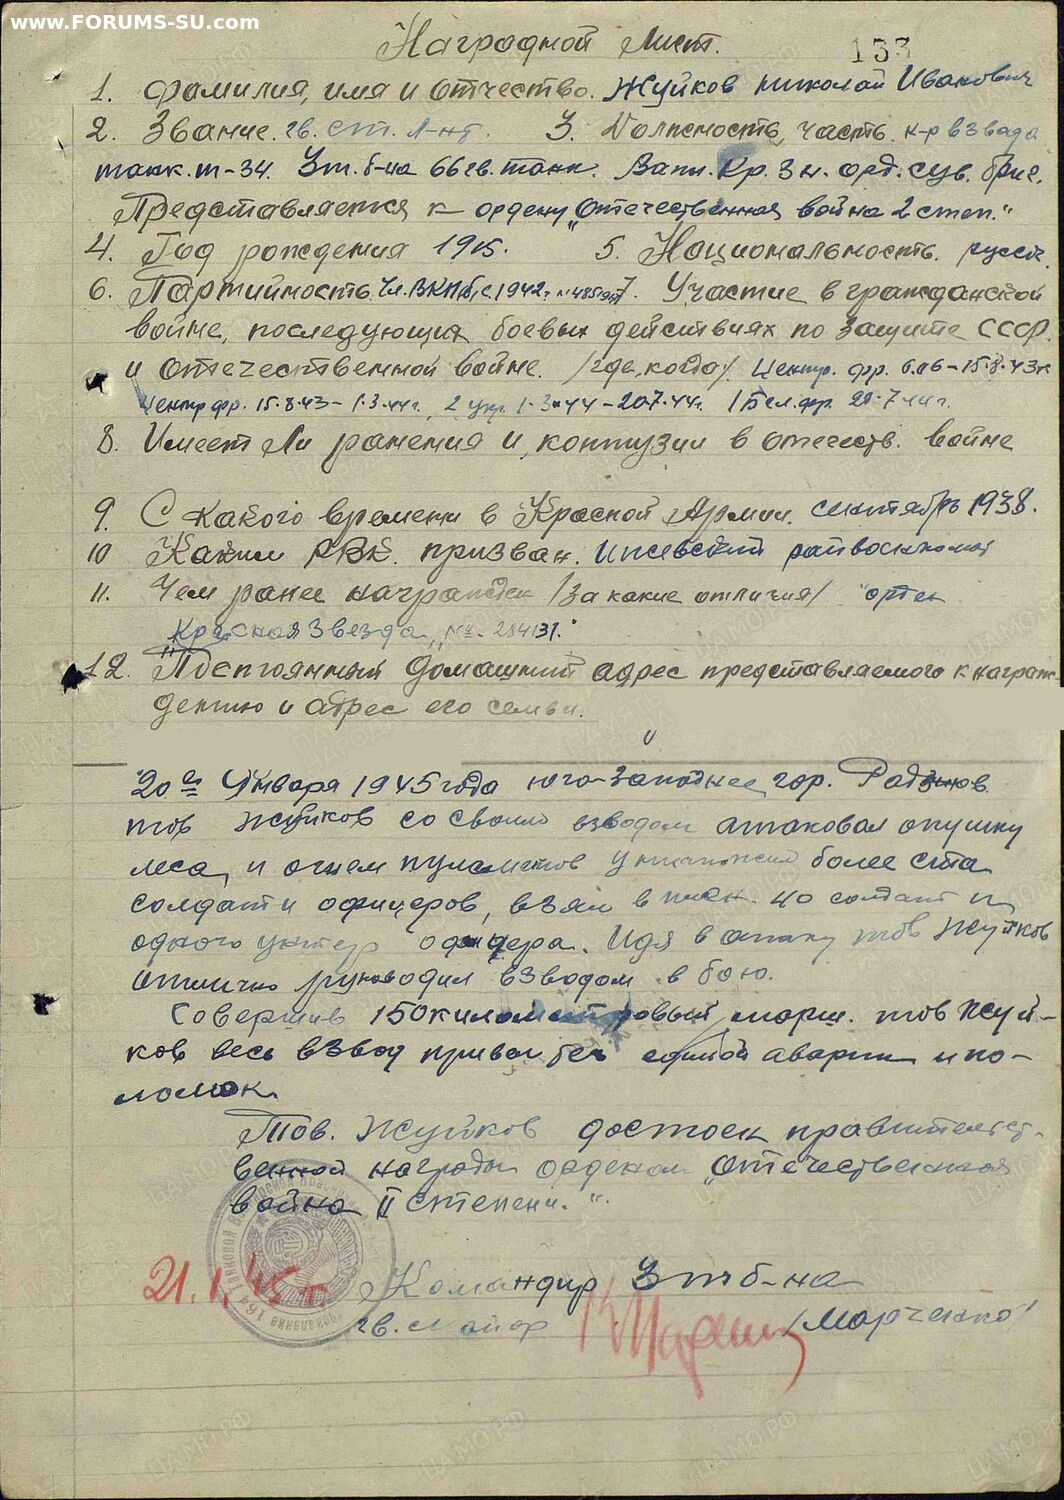 www.FORUMS-SU.com
Наградной Лист.
133
1. Фамилия, имя и отчество. Жуйков Николай Иванович
2. Звание. гв. ст. л-нт. 3. Должность, часть. к-р взвода
танк. т-34. 3 т. б-на 66 гв. танк. Вапн. Кр. Зн. орд. сув. бриг.
Представляется к ордену „Отечественная война 2 степ."
4. Год рождения 1915. 5. Национальность. русск.
6. Партийность Чл. ВКП(б) с 1942г 7. Участие в гражданской
войне, последующих боевых действиях по защите СССР.
и отечественной войне. /где, когда/ Центр. фр. 6.06-15.8.43г.
Центр фр. 15.8.43-1.3.44г., 2 укр. 1.3.44-20.7.44г. 1 Бел. фр. 20.7.44г.
8. Имеет ли ранения и контузии в отечеств. войне
9. С какого времени в Красной Армии. сентябрь 1938.
10 Каким РВК. призван. Ижевский райвоенкомат
11. Чем ранее награжден /за какие отличия/ "орден
Красная Звезда„ №- 284131."
12. Постоянный домашний адрес представляемого к награж-
дению и адрес его семьи.
20го Января 1945 года юго-западнее гор.
тов Жуйков со своим взводом атаковал опушку
леса, и огнем пулеметов уничтожил более ста
солдат и офицеров, взял в плен 40 солдат и
одного унтер офицера. Идя в атаку тов Жуйков
отлично руководил взводом в бою.
Совершив 150 километровый марш. тов Жуй-
ков весь взвод привел без единой аварии и по-
ломок.
Тов. Жуйков достоен правительст-
венной награды орденом „отечественная
война II степени.".
21.1.45 г. Командир 3 тб-на
гв. майор /Марченко/